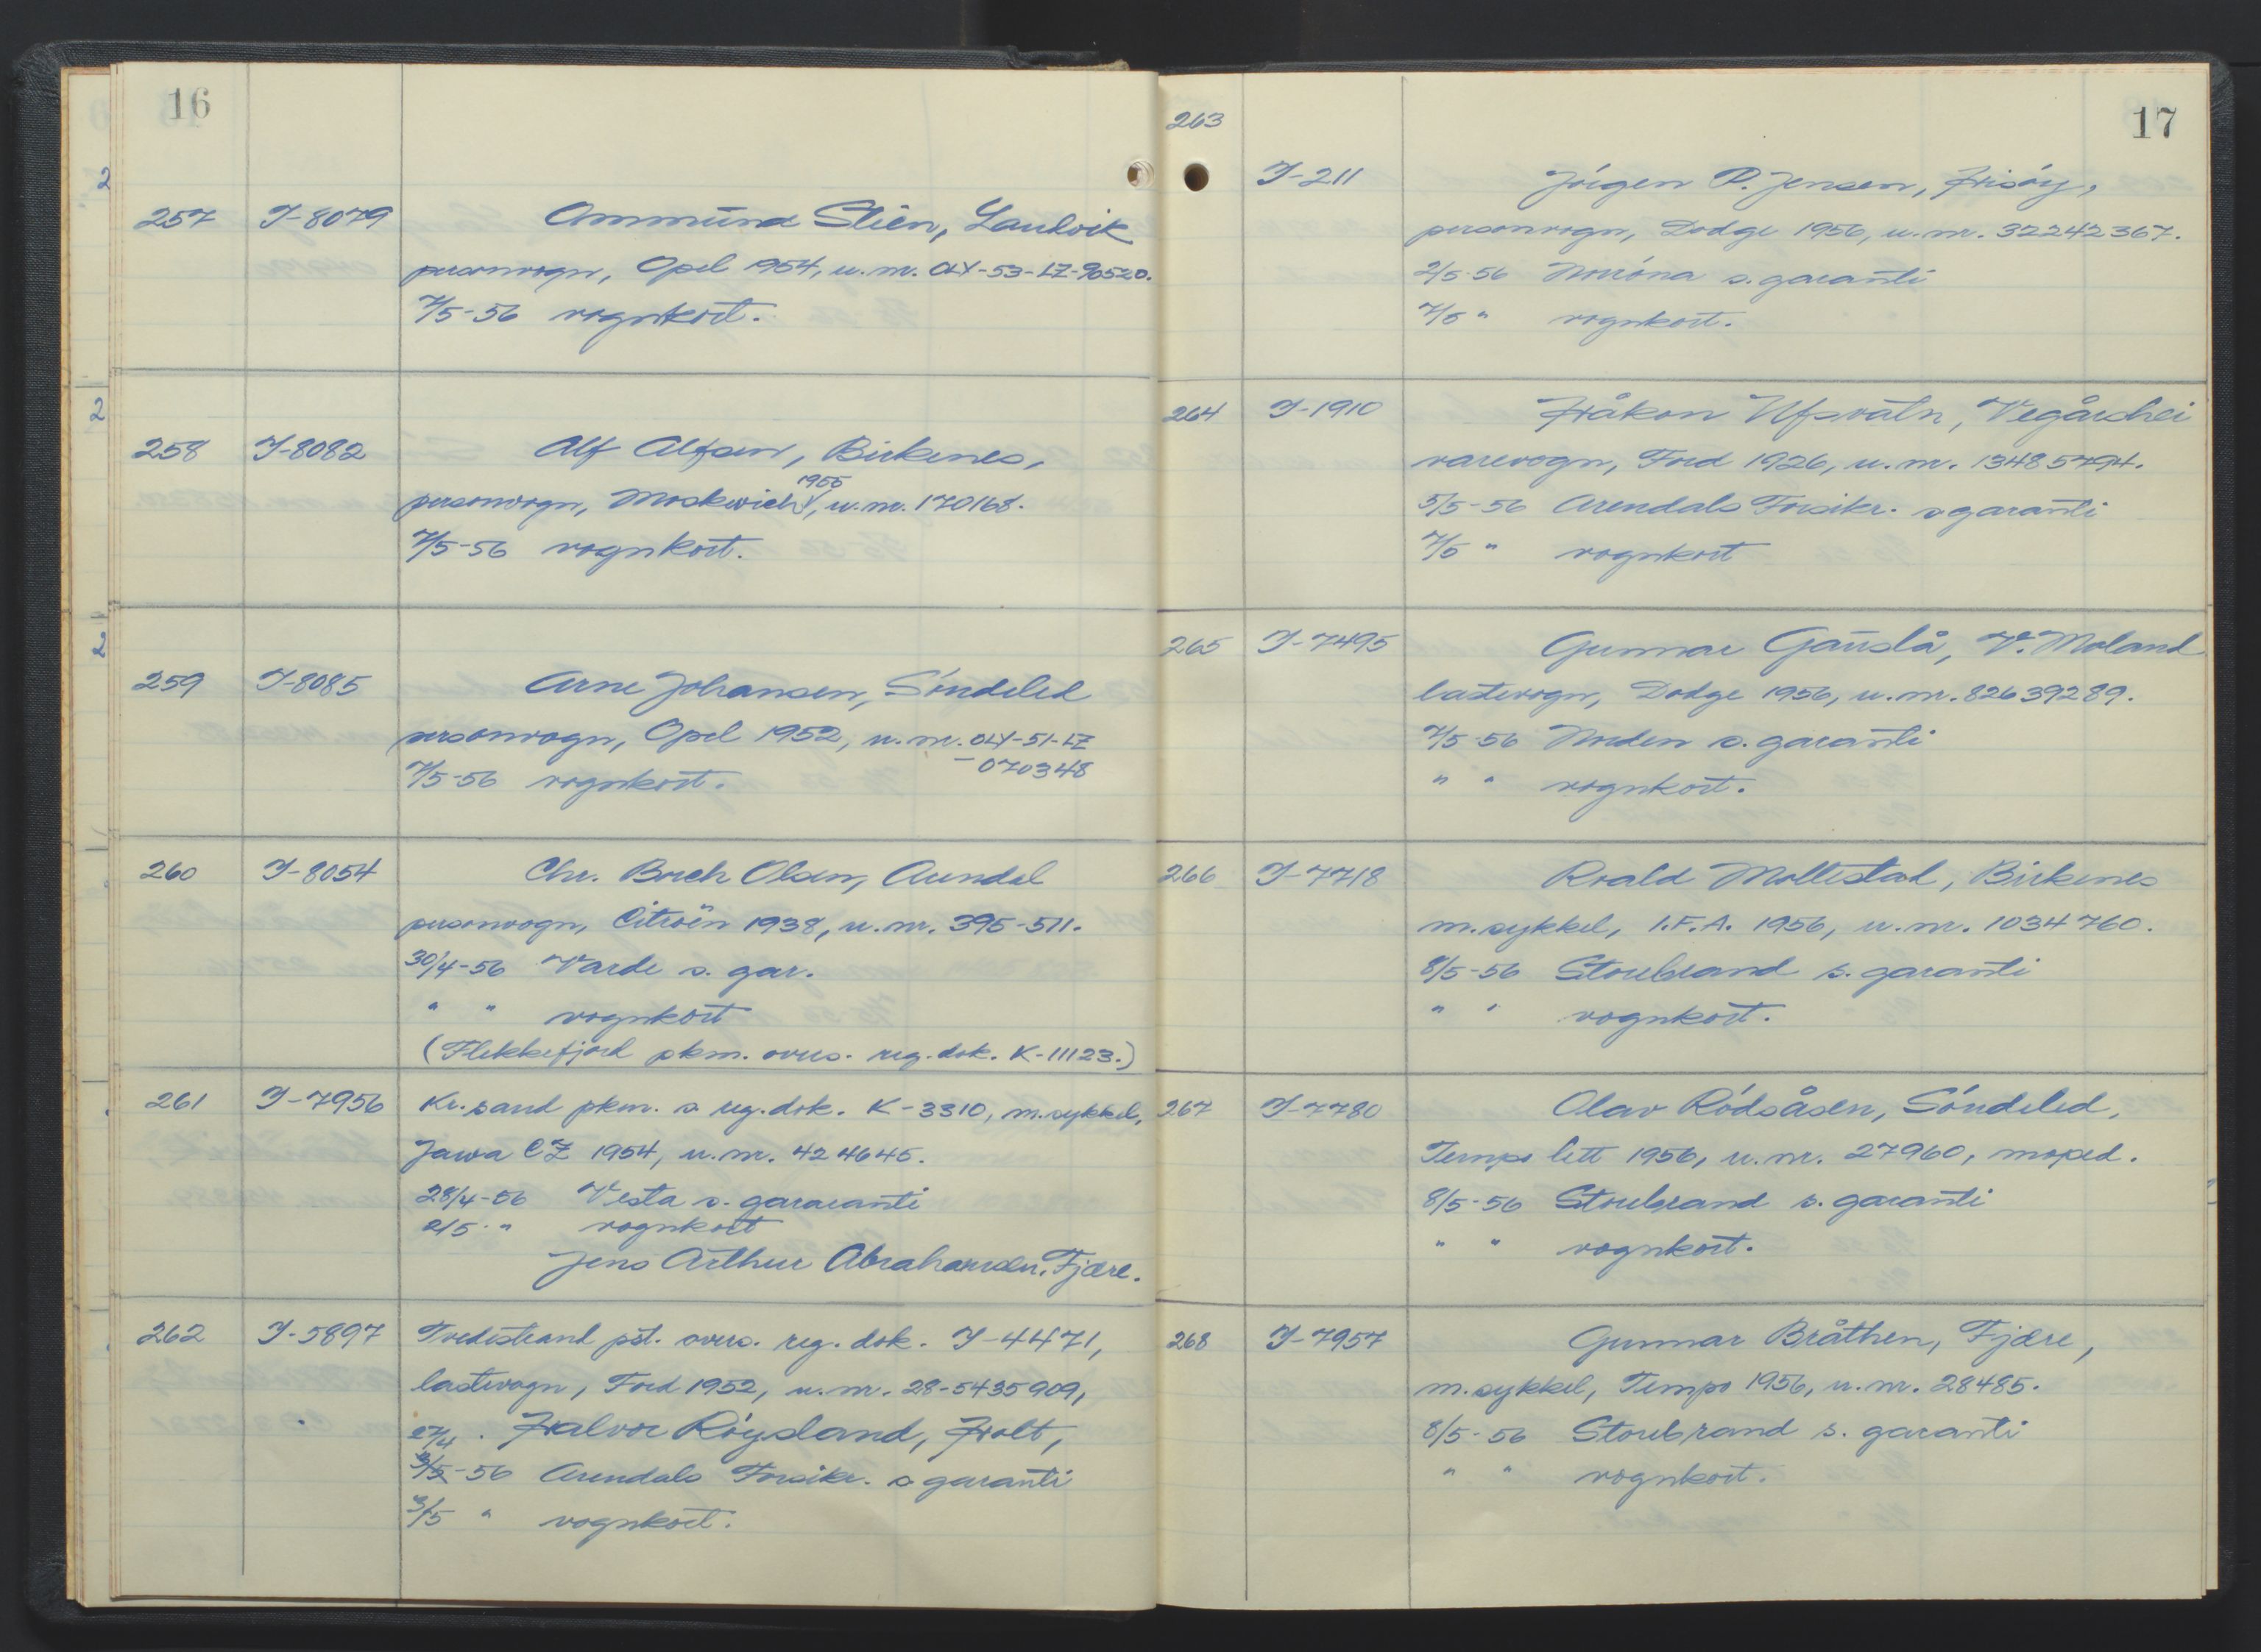 16
257 I-8079 Ommund Stien, Landvik
personvogn, Opel 1954, u.nr. OLY-53-LZ-90520.
7/5-56 vognkort.
258 I-8082 Alf Alfsen, Birkenes,
personvogn, Moskwich 1955, u.nr. 170168.
7/5-56 vognkort.
259 I-8085 Arne Johansen, Søndeled
personvogn, Opel 1952, u.nr. OLY-51-LZ
-070348
7/5-56 vognkort.
260 I-8054 Chr. Borch Olsen, Arendal
personvogn, Citroën 1938, u.nr. 395-511.
30/4-56 Varde s. gar.
" " vognkort
(Flekkefjord pkm. overs. reg. dok. K-11123.)
261 I-7956 Kr.sand pkm. s reg.dok. K-3310, m.sykkel,
Jawa CZ 1954, u.nr. 424645.
28/4-56 Vesta s. gararanti
2/5 - " vognkort
Jens Arthur Abrahamsen, Fjære.
262 I-5897 Tvedestrand pst. overs. reg. dok. I-4471,
lastevogn, Ford 1952, u.nr. 28-5435909,
27/4 . Halvor Røysland, Holt,
3/5-56 Arendals Forsikr. s garanti
3/5 " vognkort.
17
263
I-211 Jørgen P. Jensen, Hisøy,
personvogn, Dodge 1956, u.nr. 32242367.
2/5-56 Norröna s. garanti
7/5 " vognkort.
264 I-1910 Håkon Ufsvatn, Vegårshei
varevogn, Ford 1926, u.nr. 13485794.
5/5-56 Arendals Forsikr. s garanti
7/5 " vognkort
265 I-7495 Gunnar Gauslå, V. Moland
lastevogn, Dodge 1956, u.nr. 82639289.
7/5-56 Norden s. garanti
" " vognkort.
266 I-7718 Roald Mollestad, Birkenes
m.sykkel, I.F.A. 1956, u.nr. 1034760.
8/5-56 Storebrand s. garanti
" " vognkort.
267 I-7780 Olav Rødsåsen, Søndeled,
Tempo lett 1956, u.nr. 27960, moped.
8/5-56 Storebrand s. garanti
" " vognkort.
268 I-7957 Gunnar Bråthen, Fjære,
m.sykkel, Tempo 1956, u.nr. 28485.
8/5-56 Storebrand s. garanti
" " vognkort.